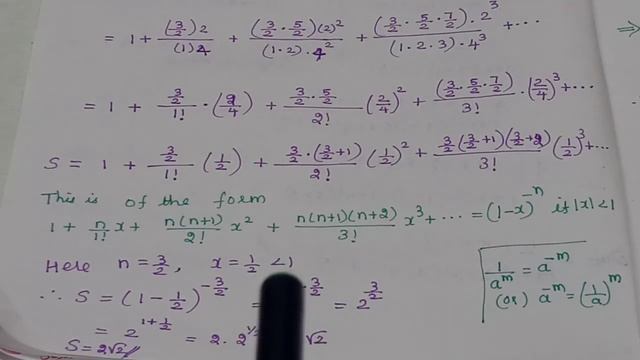 = 1 + (3/2)2/(1)4 + (3/2 · 5/2)(2)²/(1·2)·4² + (3/2 · 5/2 · 7/2)·2³/(1·2·3)·4³ + ···
⇒
= 1 + 3/2/1! · (2/4) + 3/2 · 5/2/2! (2/4)² + (3/2 · 5/2 · 7/2)/3! · (2/4)³ + ···
S = 1 + 3/2/1! (1/2) + 3/2 · (3/2+1)/2! (1/2)² + 3/2(3/2+1)(3/2+2)/3! (1/2)³ + ···
This is of the form
1 + n/1! x + n(n+1)/2! x² + n(n+1)(n+2)/3! x³ + ··· = (1-x)⁻ⁿ if |x|<1
Here n = 3/2, x = 1/2 <1
∴ S = (1 - 1/2)^(-3/2) = 3/2 = 2^(3/2)
= 2^(1+1/2) = 2. 2^(1/2) √2
S = 2√2
1/aᵐ = a⁻ᵐ
(OR) a⁻ᵐ = (1/a)ᵐ